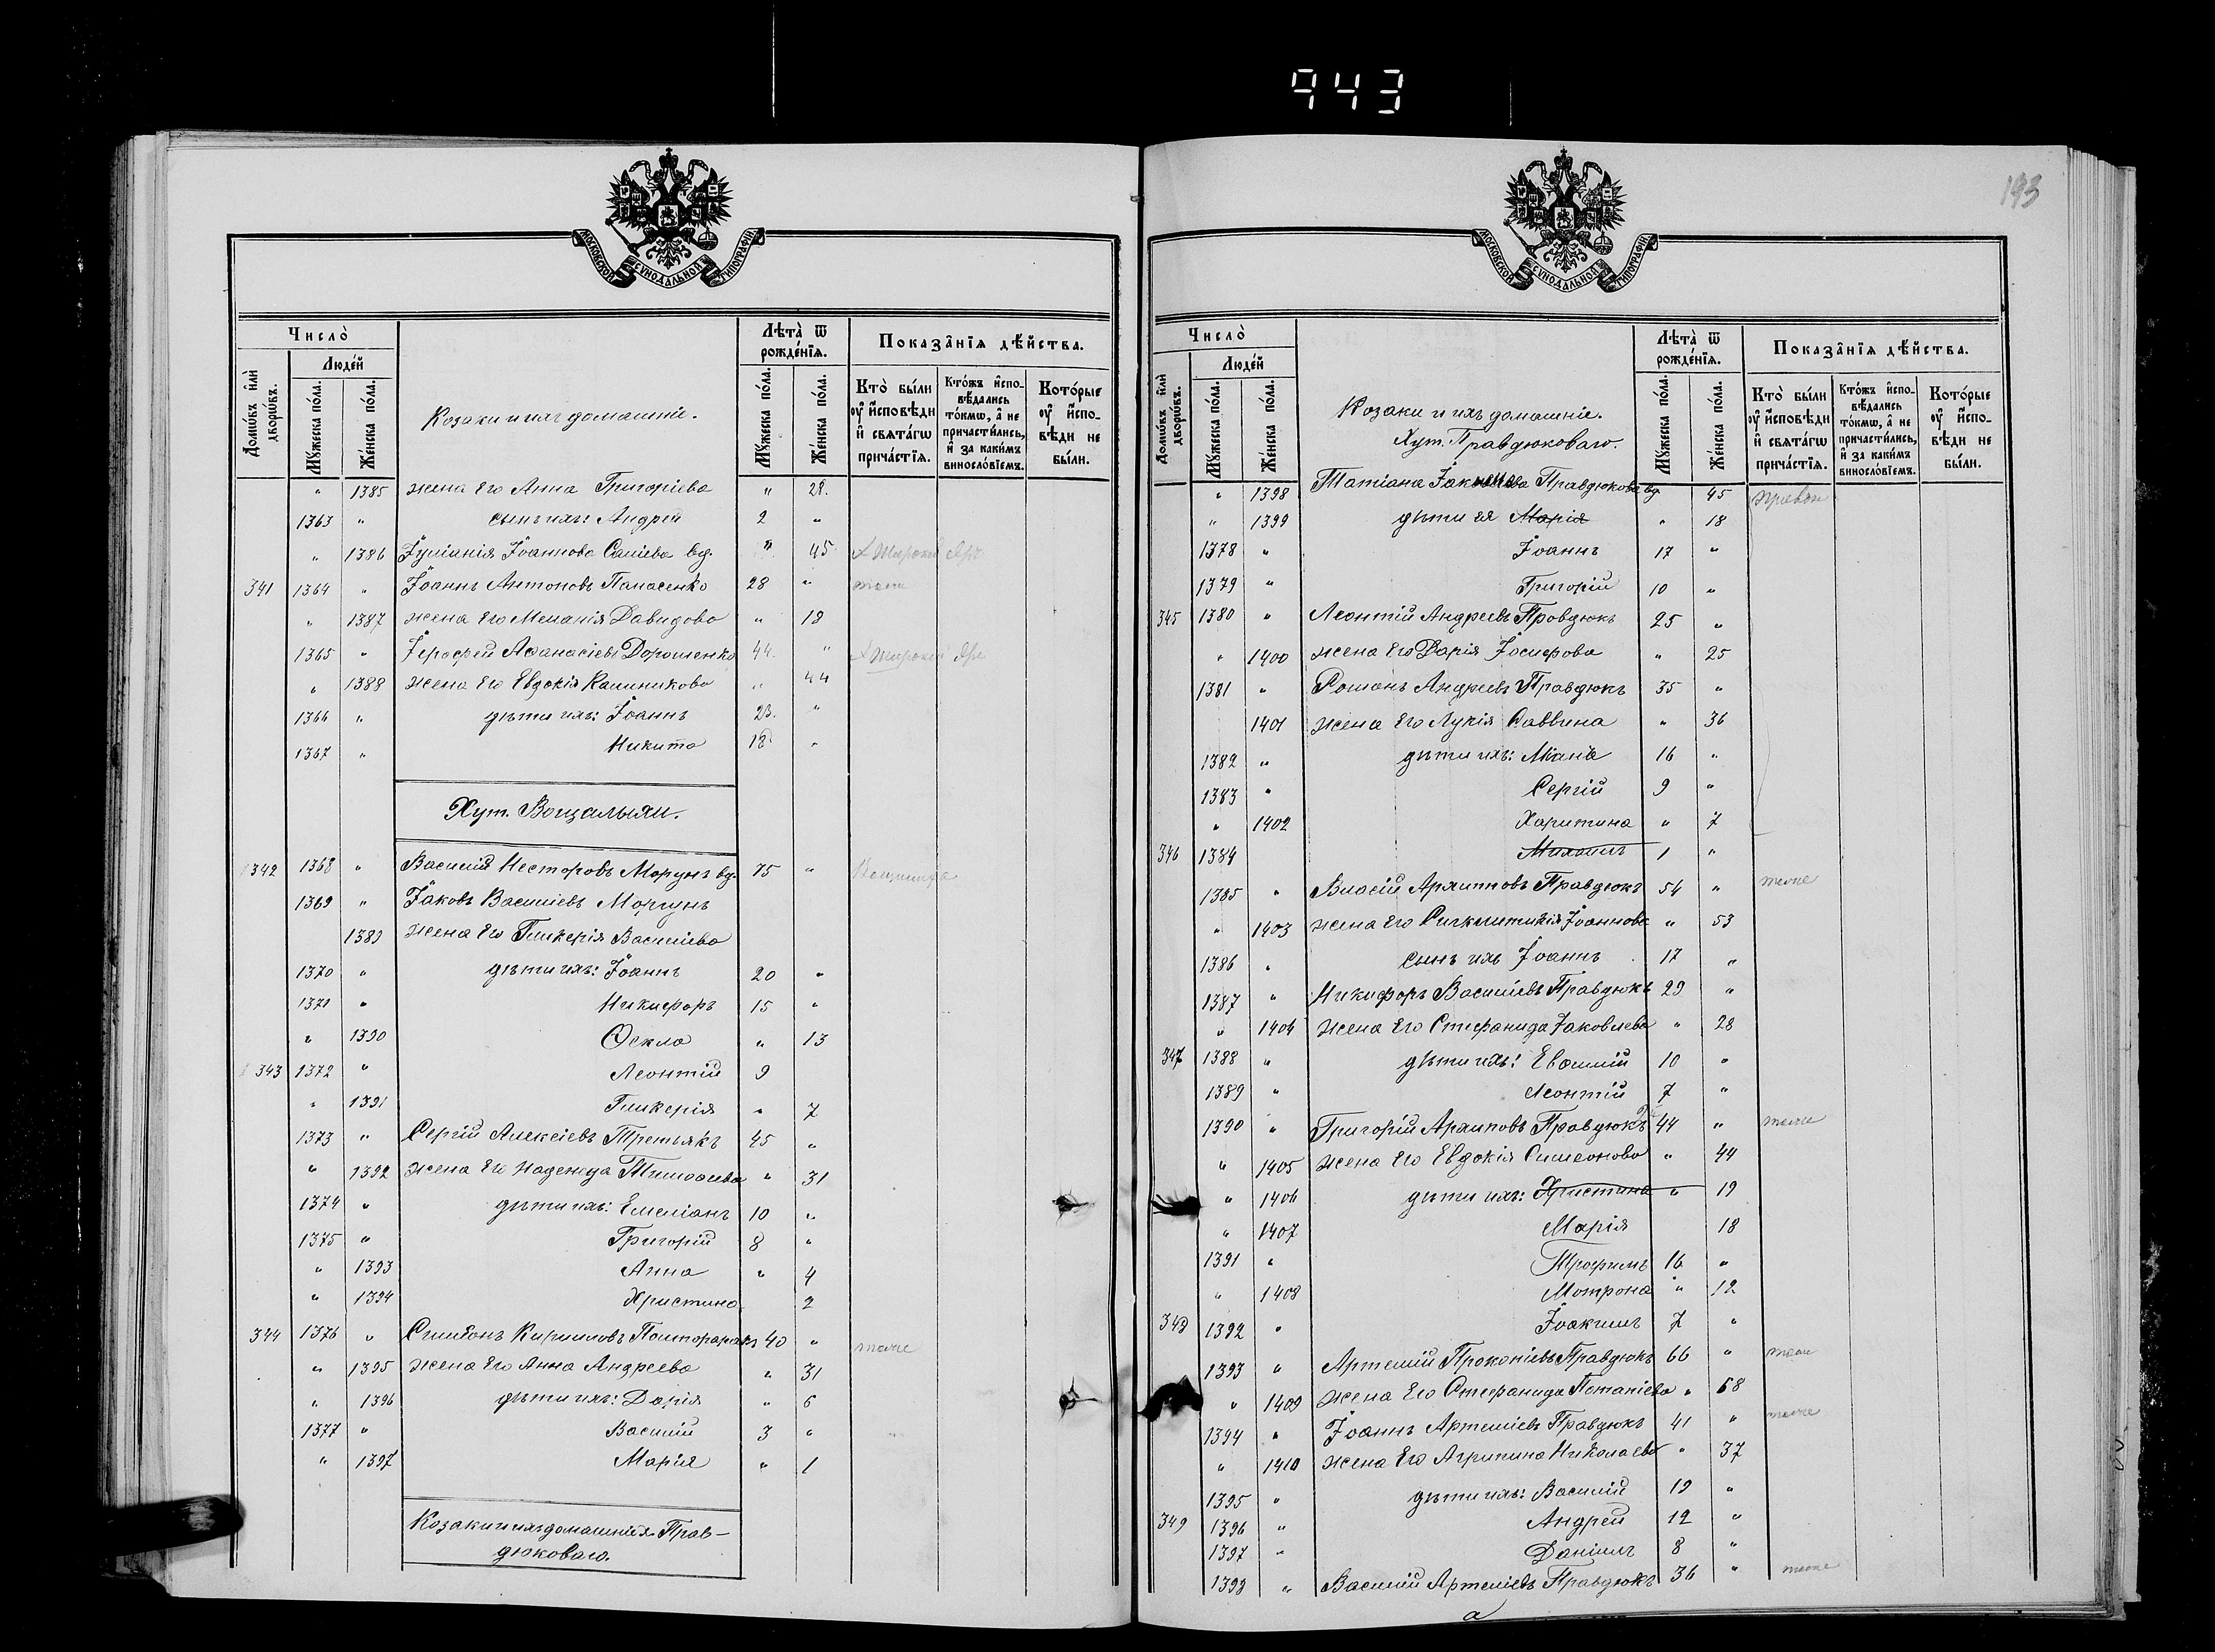 943
193
МОСКОВСКОЙ СѴНОДАЛЬНОЙ ТИПОГРАФІИ
Число̀
Людей
Домѡвъ и҆лѝ дворѡвъ.
Мꙋжеска по́ла.
Же́нска по́ла.
Козаки и ихъ домашніе.
Лѣта̀ ѿ рожде́нїѧ.
Мꙋжеска по́ла.
Же́нска по́ла.
Показа̂нїѧ дѣ́йства.
Кто̀ бы́ли ᲂу҆ и҆сповѣди и҆ свѧта́гѡ прича́стїѧ.
Кто́жъ и҆сповѣ́дались то́кмѡ, а҆ не причасти́лись, и҆ за каки́мъ винослові́емъ.
Кото́рые ᲂу҆ и҆сповѣ́ди не бы́ли.
" 1385 жена его Анна Григоріева " 28.
1363 " сынъ ихъ: Андрей 2 "
" 1386 Іуліанія Іоаннова Саліева вд. " 45
341 1364 " Іоаннъ Антоновъ Панасенко 28 " тоже
" 1387 жена его Меланія Давидова " 19
1365 " Іерофей Аѳанасіевъ Дорошенко 44 "
" 1388 жена его Евдокія Калиникова " 44
1366 " дѣти ихъ: Іоаннъ 23. "
1367 " Никита 18 "
Хут. Вощалыхи.
342 1368 " Василій Несторовъ Моргунъ вд. 75 "
1369 " Іаковъ Василіевъ Моргунъ
1389 жена его Гликерія Василіева
1370 " дѣти ихъ: Іоаннъ 20 "
1371 " Никифоръ 15 "
" 1390 Ѳекла " 13
343 1372 " Леонтій 9
" 1391 Гликерія " 7
1373 " Сергій Алексіевъ Третьякъ 45 "
" 1392 жена его Надежда Тимоѳеева " 31
1374 " дѣти ихъ: Емеліанъ 10 "
1375 " Григорій 8 "
" 1393 Анна " 4
" 1394 Христина 2
344 1376 " Симеонъ Кирилловъ Полтораракъ 40 " тоже
" 1395 жена его Анна Андреева " 31
" 1396 дѣти ихъ: Дарія " 6
1377 " Василій 3 "
" 1397 Марія " 1
Козаки и ихъ домашнія Прав-
дюковаго.
МОСКОВСКОЙ СѴНОДАЛЬНОЙ ТИПОГРАФІИ
Число̀
Людей
Домѡвъ и҆лѝ дворѡвъ.
Мꙋжеска по́ла.
Же́нска по́ла.
Козаки и ихъ домашніе.
Хут. Правдюковаго.
Лѣта̀ ѿ рожде́нїѧ.
Мꙋжеска по́ла.
Же́нска по́ла.
Показа̂нїѧ дѣ́йства.
Кто̀ бы́ли ᲂу҆ и҆сповѣди и҆ свѧта́гѡ прича́стїѧ.
Кто́жъ и҆сповѣ́дались то́кмѡ, а҆ не причасти́лись, и҆ за каки́мъ винослові́емъ.
Кото́рые ᲂу҆ и҆сповѣ́ди не бы́ли.
" 1398 Татіана Іаковлева Правдюкова вд. 45
" 1399 дѣти ея Марія " 18
1378 " Іоаннъ 17 "
1379 " Григорій 10 "
345 1380 " Леонтій Андреевъ Правдюкъ 25 "
" 1400 жена его Дарія Іосифова " 25
1381 " Романъ Андреевъ Правдюкъ 35 "
1401 жена его Лукія Саввина " 36
1382 " дѣти ихъ: 16 "
1383 " Сергій 9 "
" 1402 Харитина " 7
346 1384 Михаилъ 1 "
1385 " Власій Архиповъ Правдюкъ 54 " тоже
" 1403 жена его Синклитикія Іоаннова " 53
1386 " сынъ ихъ Іоаннъ 17 "
1387 " Никифоръ Василіевъ Правдюкъ 29 "
" 1404 жена его Стефанида Іаковлева " 28
347 1388 " дѣти ихъ: Евѳимій 10 "
1389 " Леонтій 7 "
1390 " Григорій Архиповъ Правдюкъ 44 " тоже
" 1405 жена его Евдокія Симеонова " 44
" 1406 дѣти ихъ: Христина " 19
" 1407 Марія 18
1391 " Трофимъ 16 "
" 1408 Мотрона " 12
348 1392 " Іоакимъ 7 "
1393 " Артемій Прокопіевъ Правдюкъ 66 " тоже
" 1409 жена его Стефанида Потапіева " 68
1394 " Іоаннъ Артеміевъ Правдюкъ 41 " тоже
" 1410 жена его Агрипина Николаева " 37
1395 " дѣти ихъ: Василій 19 "
349 1396 " Андрей 12 "
1397 " Даніилъ 8 "
1398 " Василій Артеміевъ Правдюкъ 36 " тоже